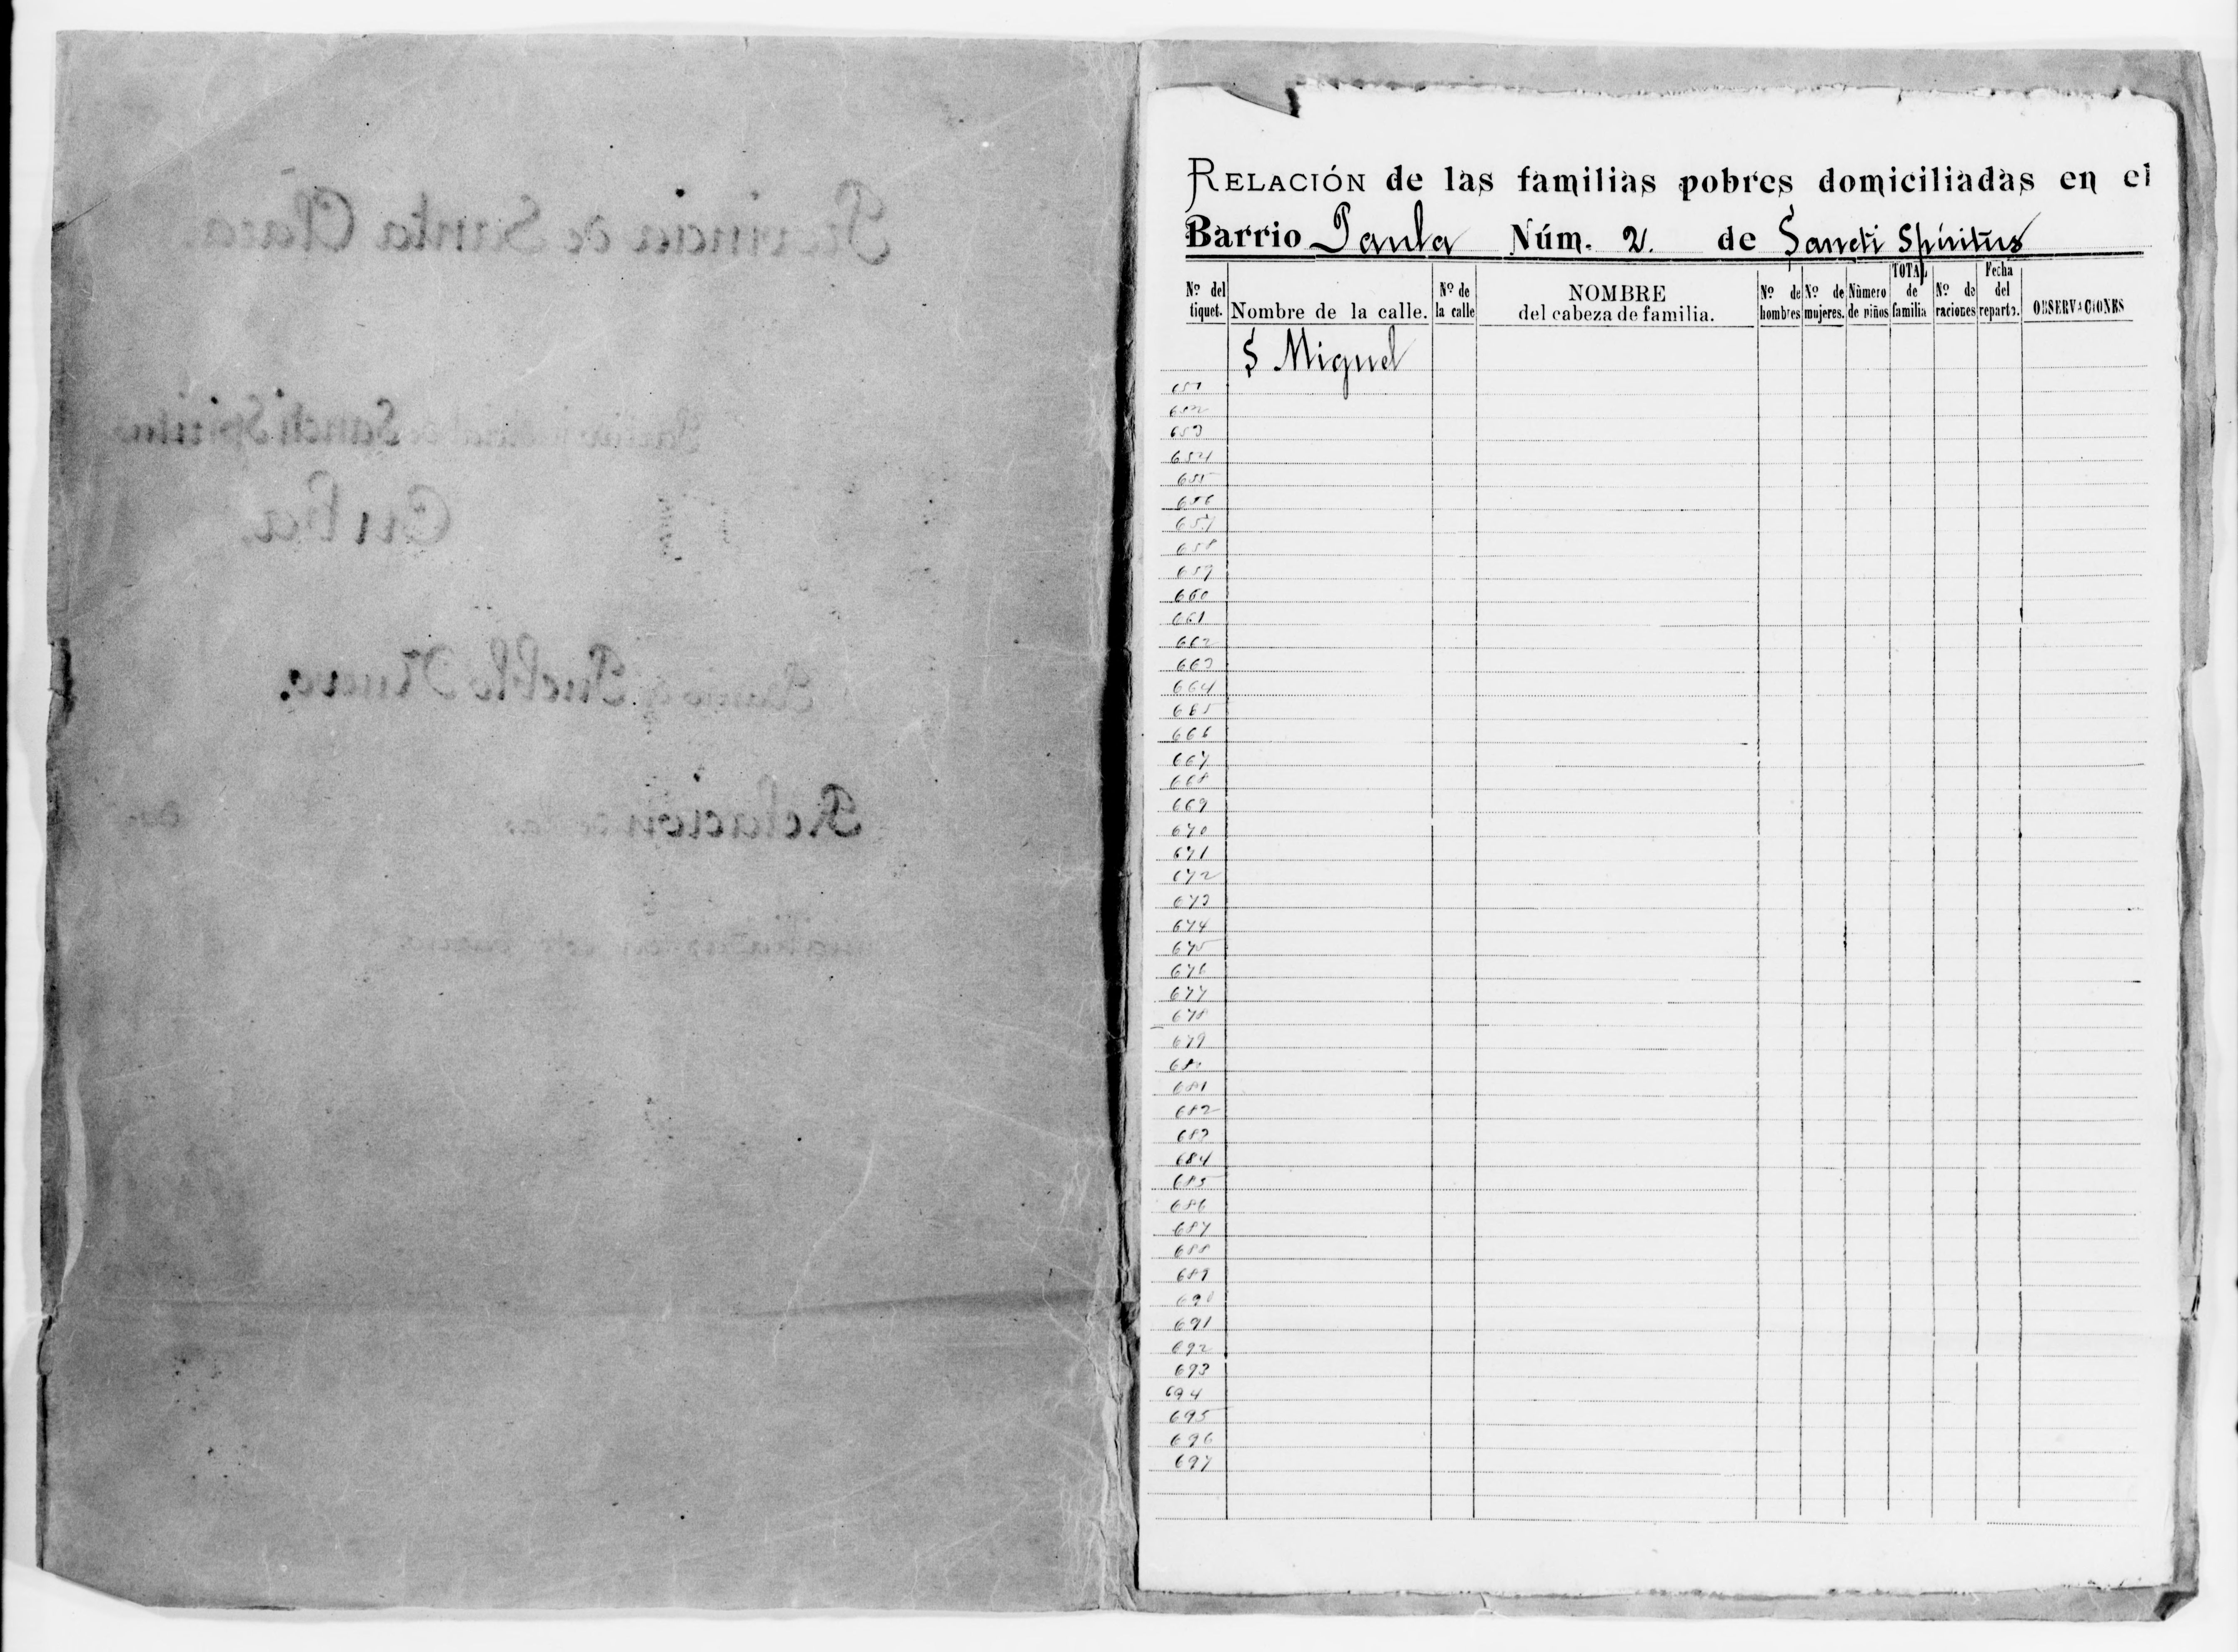 Provincia de Santa Clara.
de Sancti Spiritus
Cuba.
Pueblo Nuevo.
Relación de las
RELACIÓN de las familias pobres domiciliadas en el
Barrio Paula Núm. 2. de Sancti Spiritus
Nº del tiquet. Nombre de la calle. Nº de la calle NOMBRE del cabeza de familia. Nº de hombres Nº de mujeres. Número de niños TOTAL de familia Nº de raciones Fecha del reparto. OBSERVACIONES
S Miguel
651
652
653
654
655
656
657
658
659
660
661
662
663
664
665
666
667
668
669
670
671
672
673
674
675
676
677
678
679
680
681
682
683
684
685
686
687
688
689
690
691
692
693
694
695
696
697